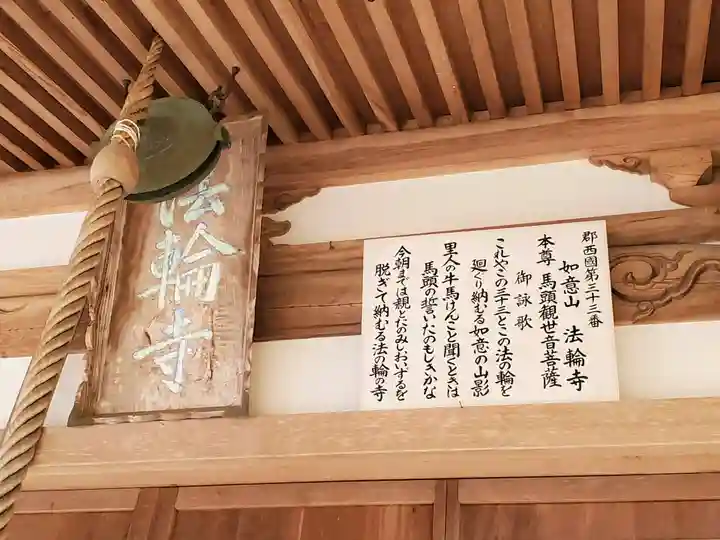 法輪寺
郡西國第三十三番
如意山 法輪寺
本尊 馬頭観世音菩薩
御詠歌
これやこの三十三とこの法の輪を
廻ぐり納むる如意の山影
里人の牛馬けんごと聞くときは
馬頭の誓いたのもしきかな
今朝までは親とたのみしおいずるを
脱ぎて納むる法の輪の寺